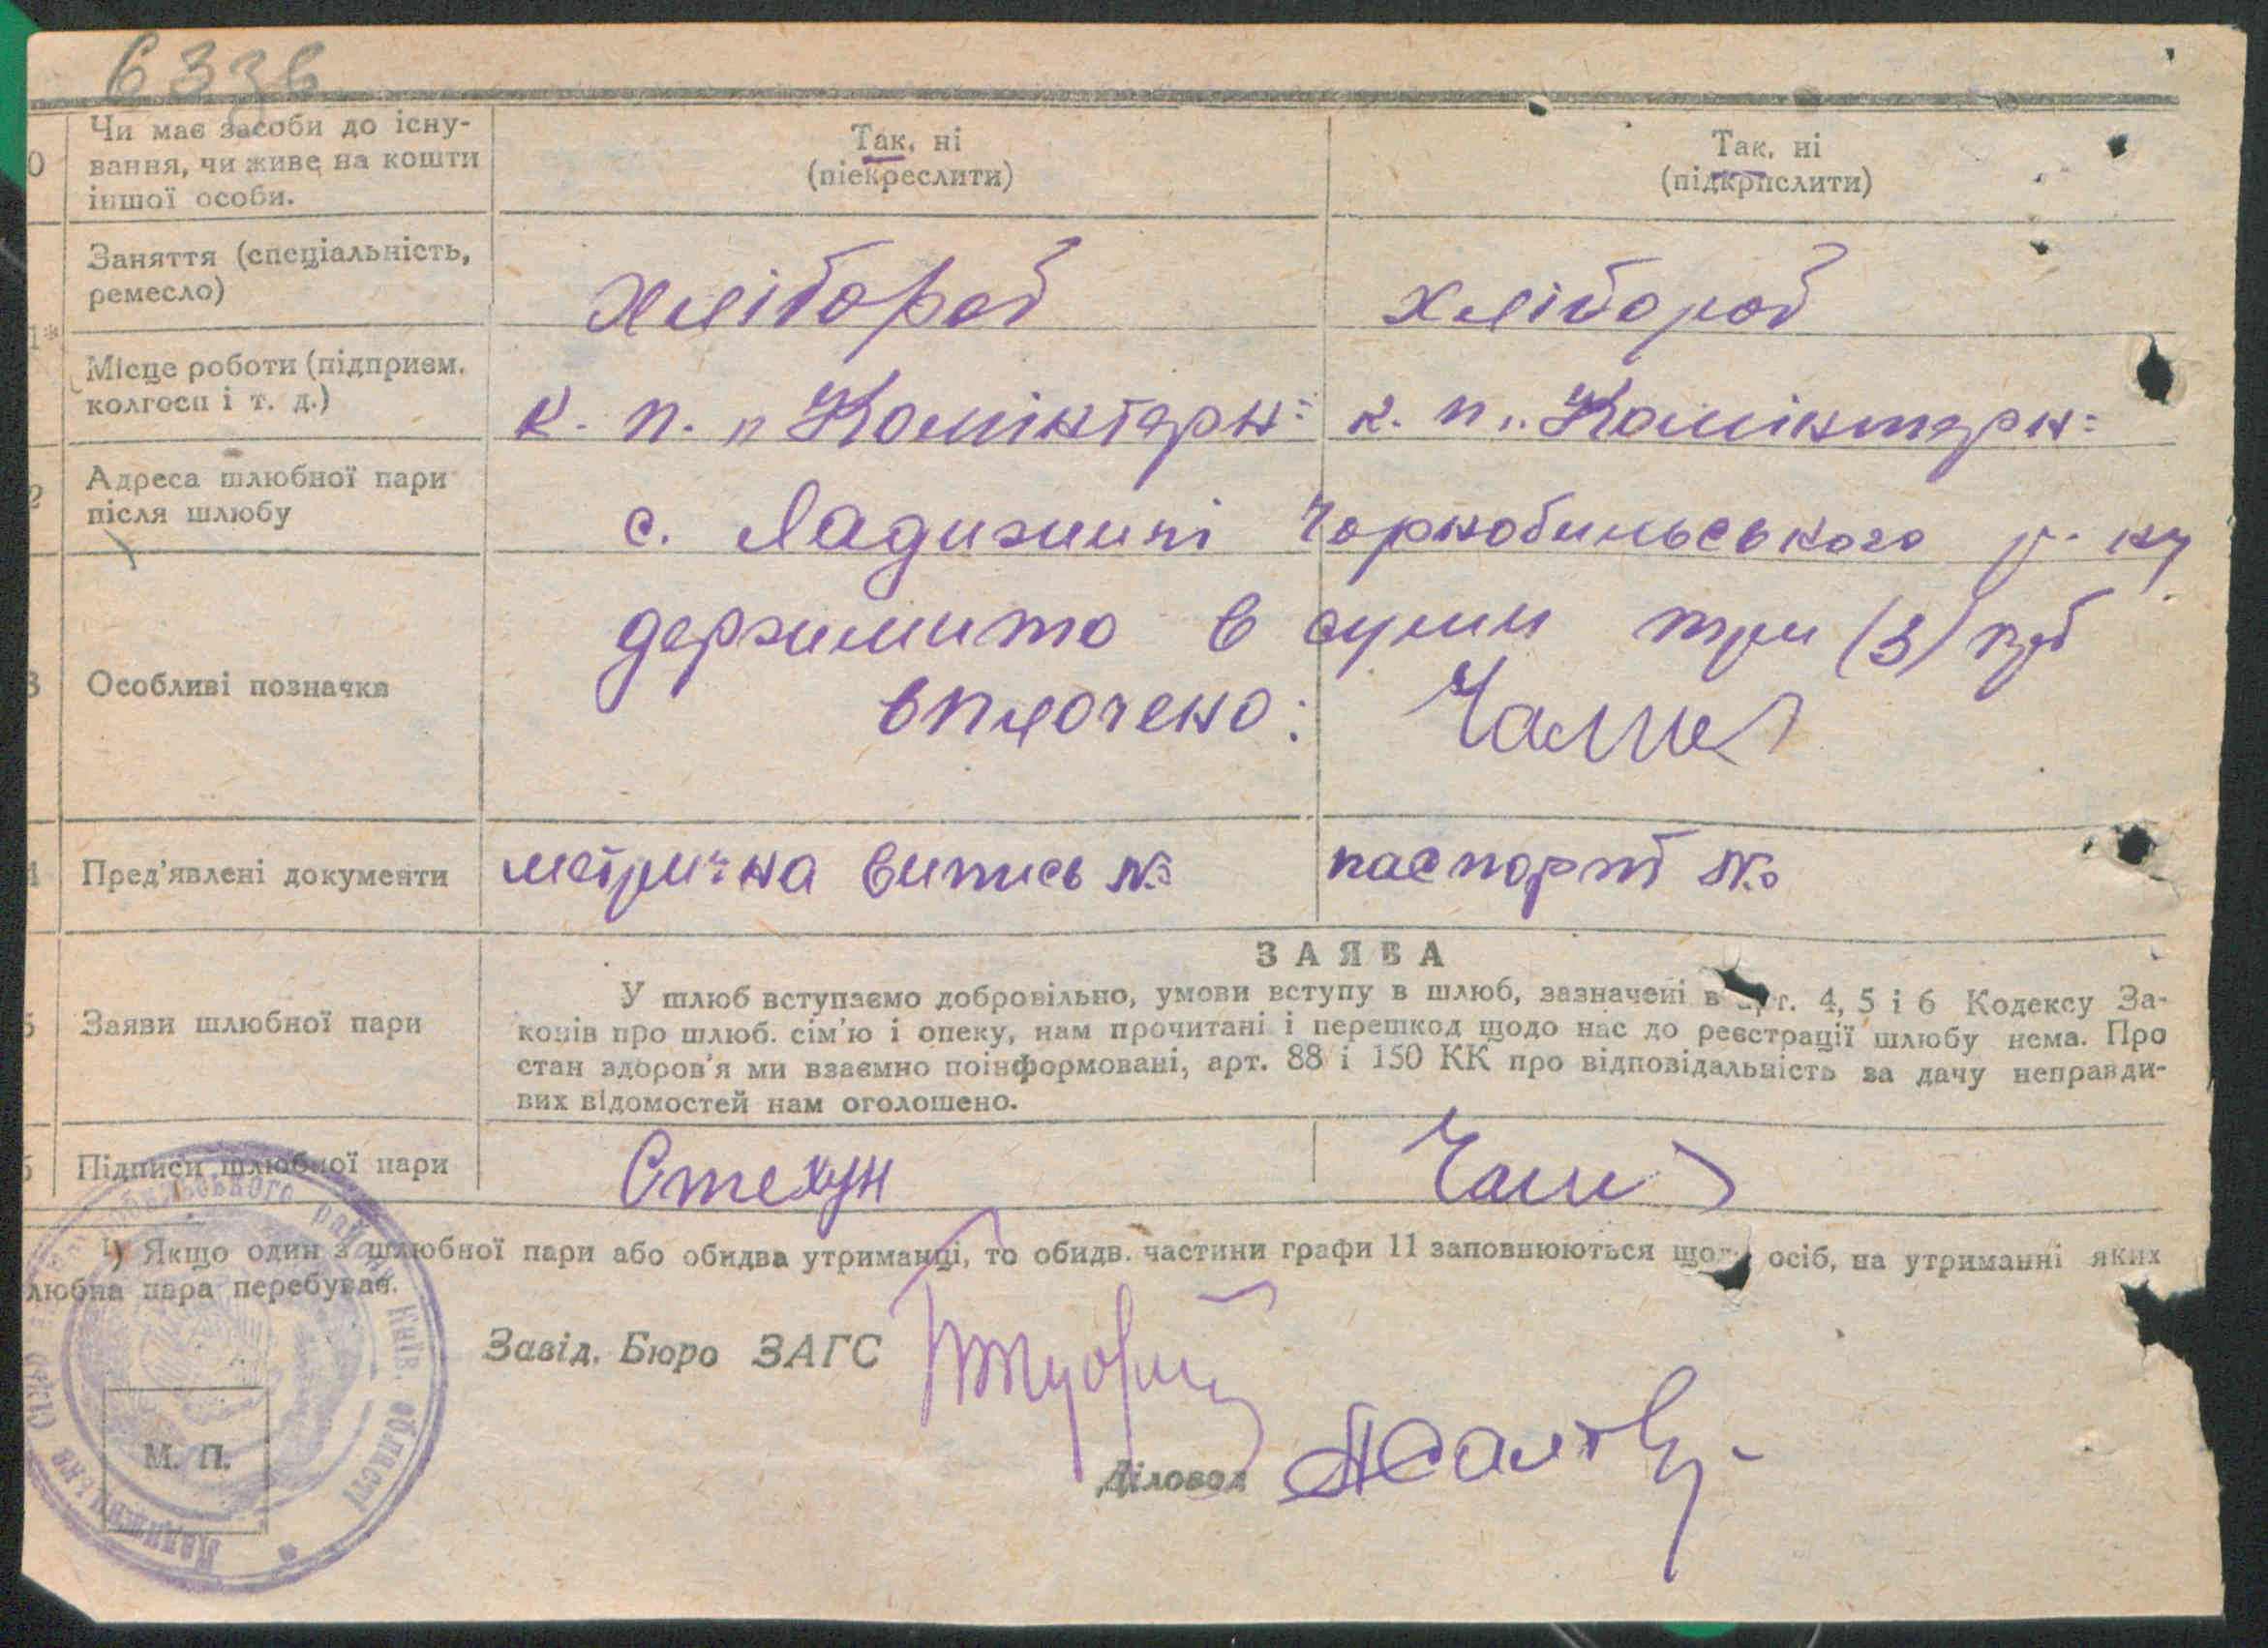 6336
0 Чи має засоби до існу-
вання, чи живе на кошти
іншої особи.
Так, ні
(піекреслити)
Так, ні
(підкрпслити)
1* Заняття (спеціальність,
ремесло)
Хлібороб
хлібороб
Місце роботи (підприєм.
колгосп і т. д.)
к. п. „Комінтерн"
к. п. „Комінтерн"
2 Адреса шлюбної пари
після шлюбу
с. Ладижичі Чорнобильського р-ну
3 Особливі позначки
держмито в сумі три (3) крб
вплочено:
4 Пред'явлені документи
метрична випись №
паспорт №
5 Заяви шлюбної пари
ЗАЯВА
У шлюб вступаємо добровільно, умови вступу в шлюб, зазначені в арт. 4, 5 і 6 Кодексу За-
конів про шлюб. сім'ю і опеку, нам прочитані і перешкод щодо нас до реєстрації шлюбу нема. Про
стан здоров'я ми взаємно поінформовані, арт. 88 і 150 КК про відповідальність за дачу неправди-
вих відомостей нам оголошено.
6 Підписи шлюбної пари
Стехун
¹) Якщо один з шлюбної пари або обидва утриманці, то обидв. частини графи 11 заповнюються що осіб, на утриманні яких
любна пара перебуває.
Завід. Бюро ЗАГС
Діловод
М. П.
Чорнобильського району Київ. області